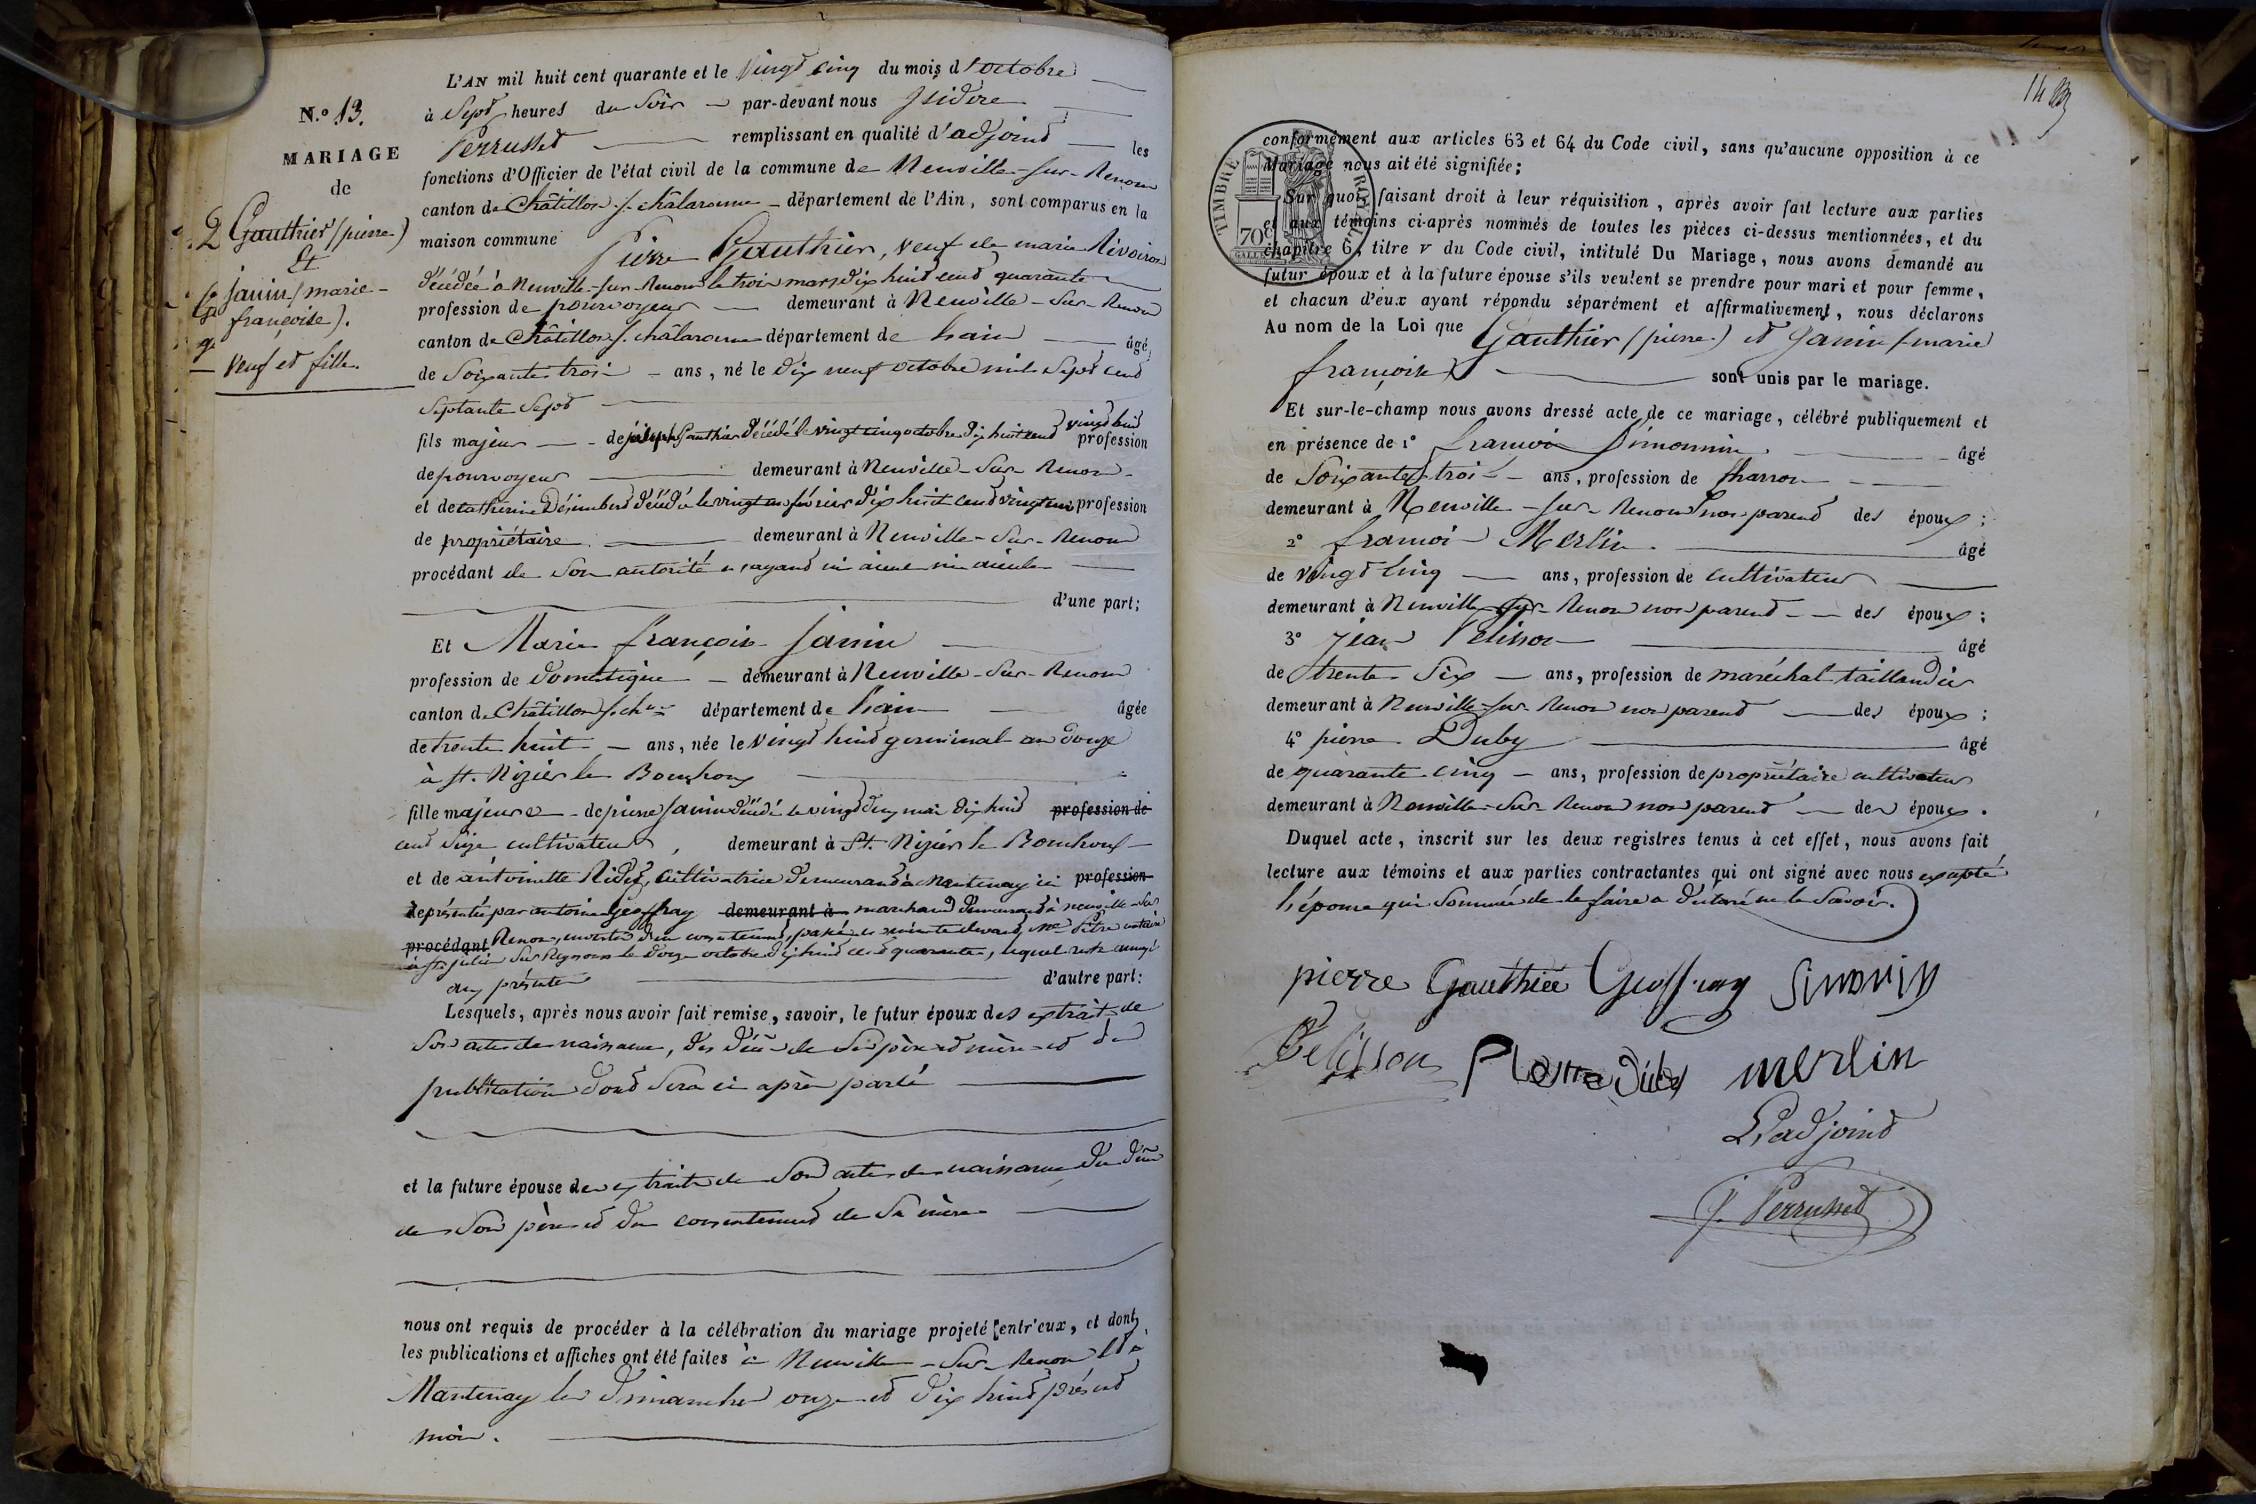 N.º 13.
MARIAGE
de
Gauthier (pierre)
Et
janin (marie-
françoise).
veuf et fille.
L'AN mil huit cent quarante et le Vingt cinq du mois d'octobre
à Sept heures du Soir par-devant nous Isidore
Perrusset remplissant en qualité d'adjoint les
fonctions d'Officier de l'état civil de la commune de Neuville-sur-Renom
canton de Châtillon s. châlaronne département de l'Ain, sont comparus en la
maison commune Pierre Gauthier, veuf de marie Rivoiron
décédée à Neuville-sur-Renom le trois mars dix huit cent quarante
profession de pourvoyeur demeurant à Neuville-Sur-Renom
canton de Châtillon s. châlaronne département de L'ain âgé
de Soixante trois ans, né le dix neuf octobre mil Sept cent
Septante Sept
fils majeur de joseph Gauthier décédé le vingt cinq octobre dix huit cent vingt huit profession
de pourvoyeur demeurant à Neuville-Sur-Renom
et de catherine Désimbert décédée le vingt un février dix huit cent vingt un profession
de propriétaire demeurant à Neuville-Sur-Renom
procédant de Son autorité n'ayant ni aieul ni aieule
d'une part;
Et Marie françoise Janin
profession de domestique demeurant à Neuville-Sur-Renom
canton de Châtillon s. ch.ne département de L'ain âgée
de trente huit ans, née le Vingt huit germinal an douze
à St. Nizier le Bouchoux
fille majeure de pierre Janin décédé le vingt deux mai dix huit profession de
cent Seize cultivateur, demeurant à St. Nizier le Bouchoux
et de antoinette Nidet, cultivatrice demeurant à Mantenay ici profession
représentée par antoine Geoffray demeurant à marchand demeurant à neuville-Sur
procédant Renom, en vertu d'un consentement, passé en minute devant Me. Pitre notaire
à St. julien Sur Reyssouze le douze octobre dix huit cent quarante, lequel reste annexé
aux présentes d'autre part:
Lesquels, après nous avoir fait remise, savoir, le futur époux des extraits de
Son acte de naissance, des décès de Ses père et mère et de
publication dont Sera ci après parlé
et la future épouse des extraits de Son acte de naissance, du décès
de Son père et du consentement de Sa mère
nous ont requis de procéder à la célébration du mariage projeté entr'eux, et dont
les publications et affiches ont été faites à Neuville-Sur-Renom et à
Mantenay les dimanches onze et dix huit présent
mois.
14
TIMBRE ROYAL
70c
conformément aux articles 63 et 64 du Code civil, sans qu'aucune opposition à ce
Mariage nous ait été signifiée;
Sur quoi, faisant droit à leur réquisition, après avoir fait lecture aux parties
et aux témoins ci-après nommés de toutes les pièces ci-dessus mentionnées, et du
chapitre 6, titre v du Code civil, intitulé Du Mariage, nous avons demandé au
futur époux et à la future épouse s'ils veulent se prendre pour mari et pour femme,
et chacun d'eux ayant répondu séparément et affirmativement, nous déclarons
Au nom de la Loi que Gauthier (pierre) et Janin (marie
françoise) sont unis par le mariage.
Et sur-le-champ nous avons dressé acte de ce mariage, célébré publiquement et
en présence de 1º francois Simonnin âgé
de Soixante trois ans, profession de charron
demeurant à Neuville-sur-Renom non parent des époux;
2º francois Merlin âgé
de vingt cinq ans, profession de cultivateur
demeurant à Neuville-sur-Renom non parent des époux;
3º Jean Pelisson âgé
de trente Six ans, profession de maréchal taillandier
demeurant à Neuville-sur-Renom non parent des époux;
4º pierre Duby âgé
de quarante cinq ans, profession de propriétaire cultivateur
demeurant à Neuville-Sur-Renom non parent des époux.
Duquel acte, inscrit sur les deux registres tenus à cet effet, nous avons fait
lecture aux témoins et aux parties contractantes qui ont signé avec nous excepté
l'épouse qui Sommée de le faire a déclaré ne le Savoir.
pierre Gauthier Geoffray Simonin
Pelisson Pierre Duby merlin
L'adjoint
J. Perrusset